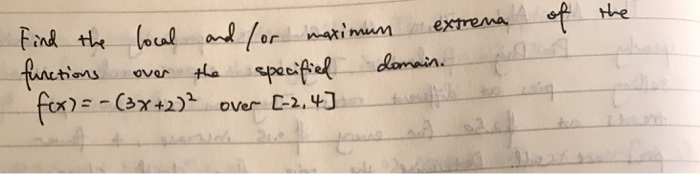 Find the local and/or maximum extrema of the
functions over the specified domain.
f(x) = -(3x+2)² over [-2,4]